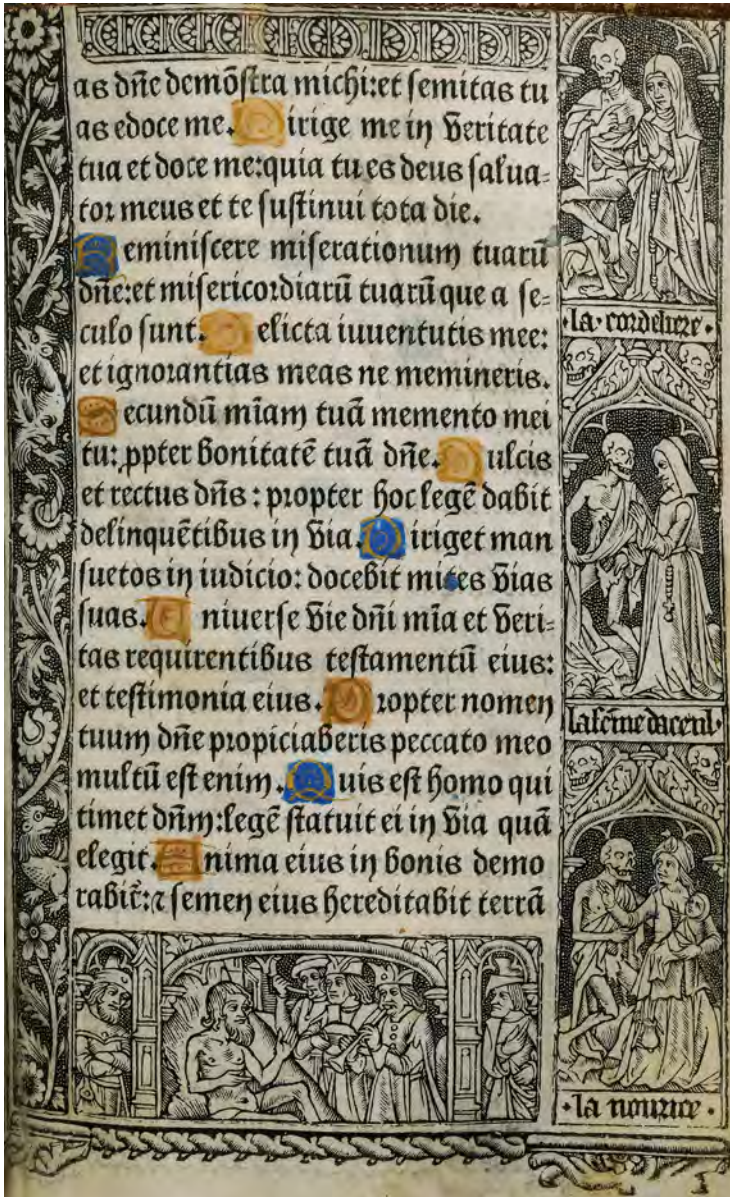 as dñe demõstra michi:et semitas tu
as edoce me. Dirige me in veritate
tua et doce me:quia tu es deus salua=
tor meus et te sustinui tota die.
Reminiscere miserationum tuarũ
dñe:et misericordiarũ tuarũ que a se=
culo sunt. Delicta iuuentutis mee:
et ignorantias meas ne memineris.
Secundũ miam tuã memento mei
tu: ꝓpter bonitatẽ tuã dñe. Dulcis
et rectus dñs : propter hoc legẽ dabit
delinquẽtibus in via. Diriget man
suetos in iudicio: docebit mites vias
suas. Uniuerse vie dñi mĩa et veri=
tas requirentibus testamentũ eius:
et testimonia eius. Propter nomen
tuum dñe propiciaberis peccato meo
multũ est enim. Quis est homo qui
timet dñm:legẽ statuit ei in via quã
elegit. Anima eius in bonis demo
rabit̃:⁊ semen eius hereditabit terrã
·la·cordeliere·
la fẽme daceul·
·la nourice·